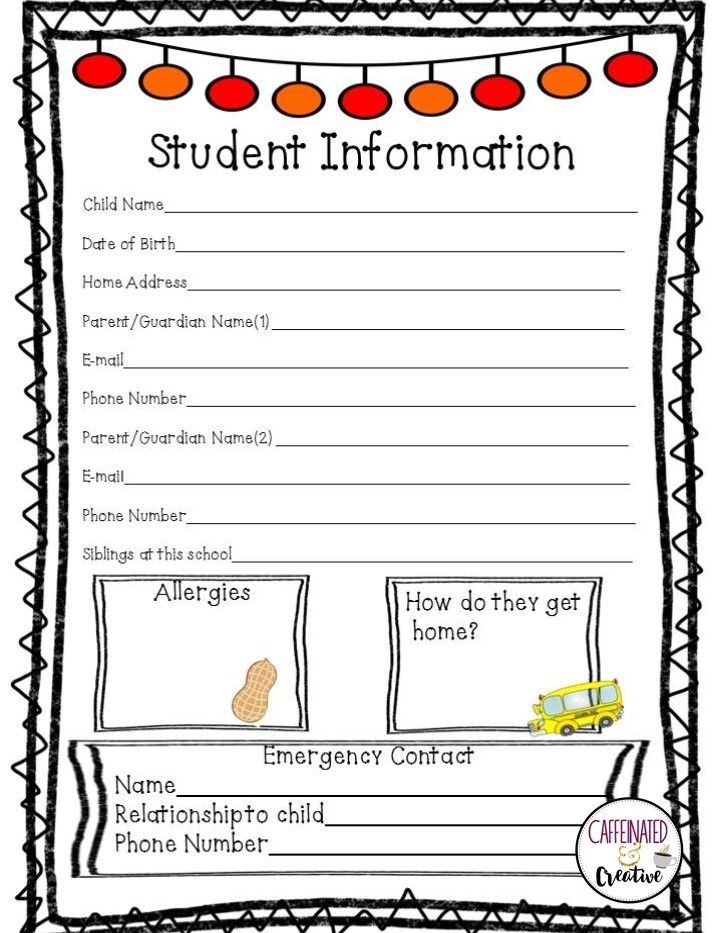 Student Information
Child Name
Date of Birth
Home Address
Parent/Guardian Name(1)
E-mail
Phone Number
Parent/Guardian Name(2)
E-mail
Phone Number
Siblings at this school
Allergies
How do they get
home?
Emergency Contact
Name
Relationship to child
Phone Number
CAFFEINATED
&
Creative